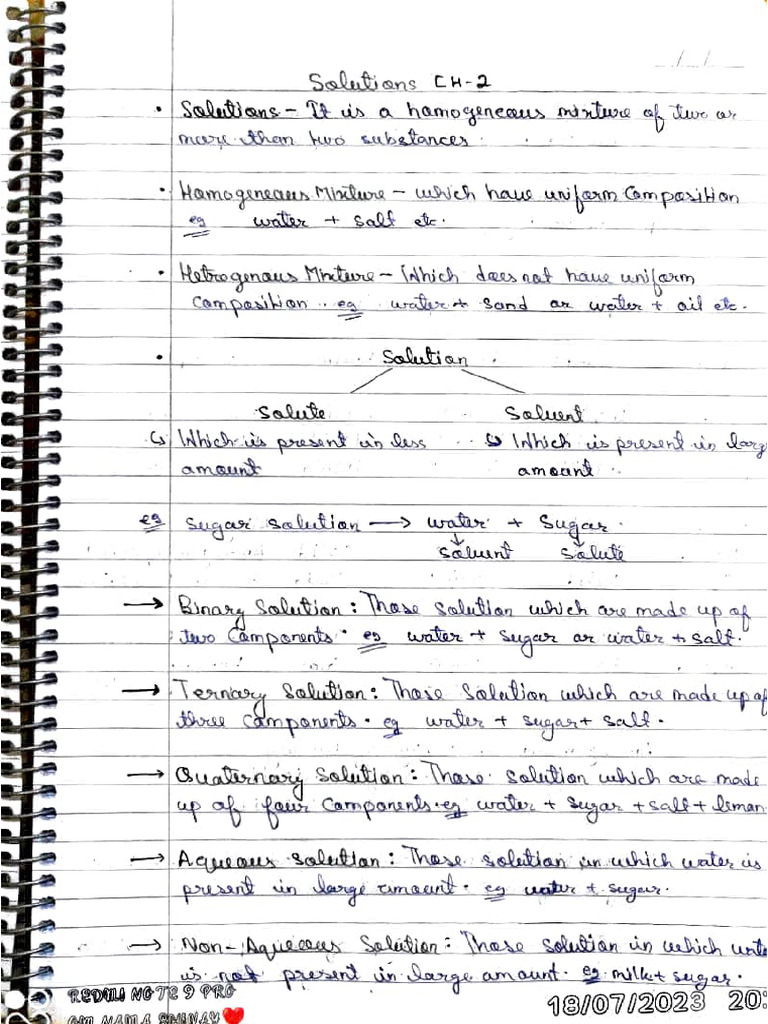 Solutions CH-2
• Solutions - It is a homogeneous mixture of two or
more than two substances.
• Homogeneous Mixture - which have uniform Composition
eg water + salt etc.
• Hetrogenous Mixture - Which does not have uniform
Composition. eg water + sand or water + oil etc.
• Solution
Solute Solvent
↳ Which is present in less ↳ Which is present in larg
amount amount
eg Sugar solution → water + Sugar.
↓ ↓
Solvent Solute
→ Binary Solution : Those solution which are made up of
two Components. eg water + sugar or water + salt.
→ Ternary Solution : Those Solution which are made up of
three Components. eg water + sugar + salt.
→ Quaternary Solution : Those solution which are made
up of four Components. eg water + sugar + salt + limon
→ Aqueous Solution : Those solution in which water is
present in large amount. eg water + sugar.
→ Non-Aqueous Solution : Those solution in which
is not present in large amount. eg milk + sugar.
REDMI NOTE 9 PRO
18/07/2023 20: